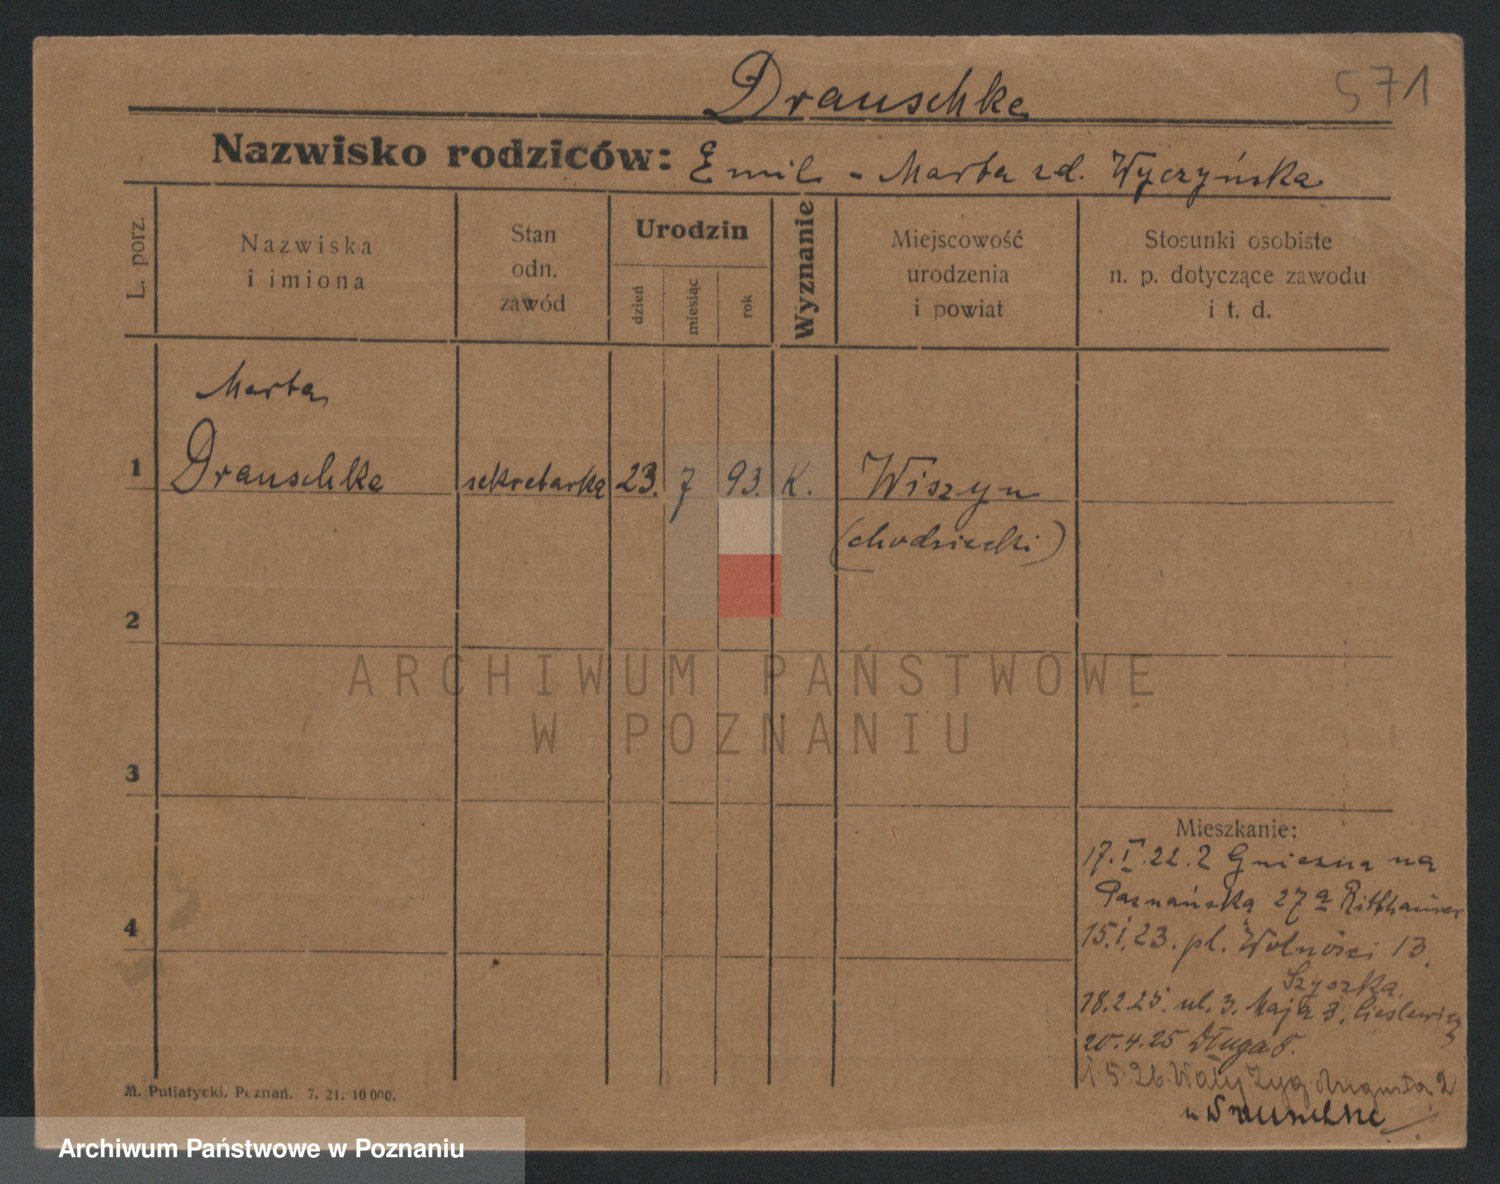 Drauschke
571
Nazwisko rodziców: Emil - Marta zd. Wyczyńska
L. porz.
Nazwiska
i imiona
Stan
odn.
zawód
Urodzin
dzień
miesiąc
rok
Wyznanie
Miejscowość
urodzenia
i powiat
Stosunki osobiste
n. p. dotyczące zawodu
i t. d.
Marta
1 Drauschke sekretarka 23. 7 93. K. Wiszyn
(chodzieski)
2
ARCHIWUM PAŃSTWOWE
W POZNANIU
3
Mieszkanie:
17.I.22. z Gniezna na
Poznańską 27a Ritthauser
4
15.1.23. pl. Wolności 13.
Szyszka.
18.2.25. ul. 3. Maja 3, Cieslewicz
20.4.25 Długa 8.
1.5.26. Wały Zyg. Augusta 2
u
M. Putiatycki, Poznań. 7. 21. 10 000.
Archiwum Państwowe w Poznaniu